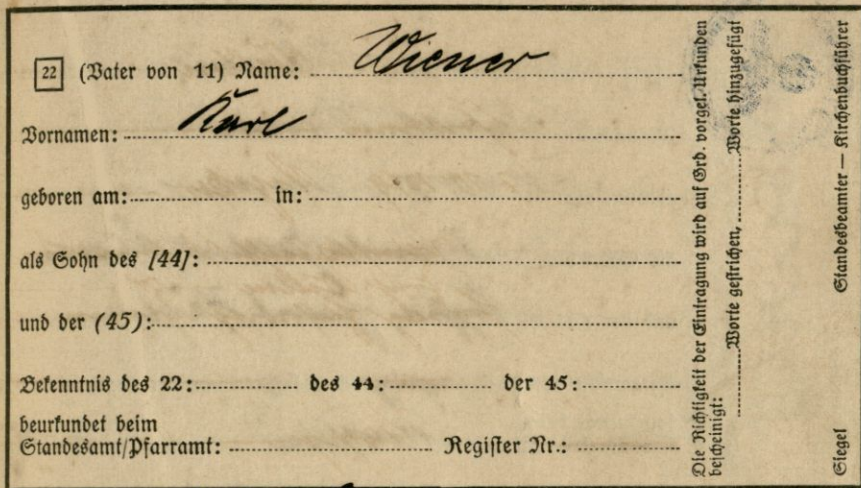 22 (Vater von 11) Name: Wiener
Vornamen: Karl
geboren am: in:
als Sohn des [44]:
und der (45):
Bekenntnis des 22: des 44: der 45:
beurkundet beim
Standesamt/Pfarramt: Register Nr.:
Die Richtigkeit der Eintragung wird auf Grd. vorgel. Urkunden
bescheinigt: Worte gestrichen, Worte hinzugefügt
Siegel Standesbeamter — Kirchenbuchführer